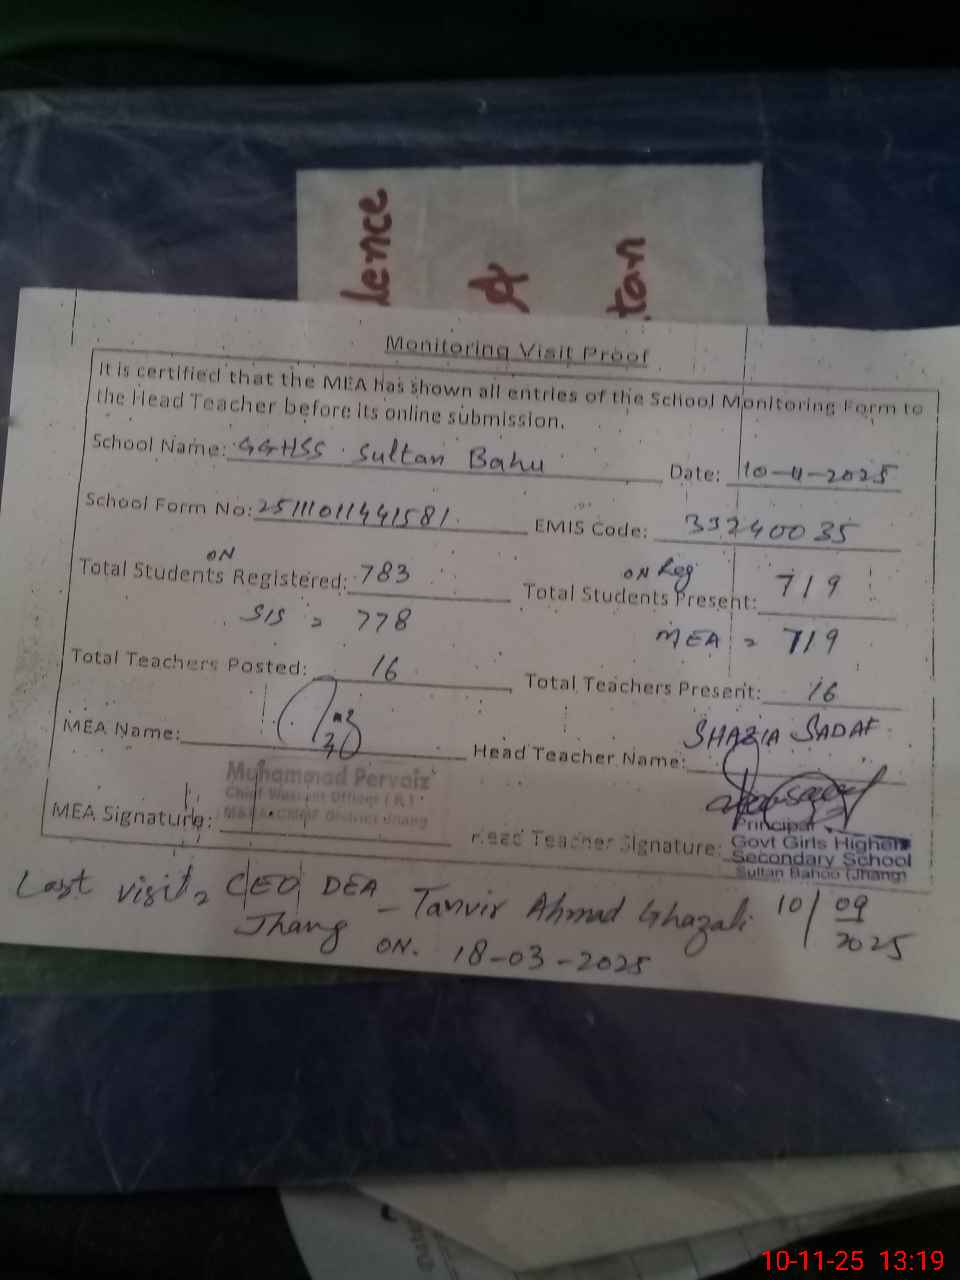 lence
&
tan
Monitoring Visit Proof
It is certified that the MEA has shown all entries of the School Monitoring Form to
the Head Teacher before its online submission.
School Name: GGHSS Sultan Bahu Date: 10-11-2025
School Form No: 2511101144 1581 EMIS Code: 33240035
ON ON Reg
Total Students Registered: 783 Total Students Present: 719
SIS = 778 MEA = 719
Total Teachers Posted: 16 Total Teachers Present: 16
MEA Name: Head Teacher Name: SHAZIA SADAF
Muhammad Pervaiz
Chief Warrant Officer (R)
MEA Signature: District Jhang
Head Teacher Signature:
Principal
Govt Girls Higher
Secondary School
Sultan Bahoo (Jhang)
Last visit, CEO DEA - Tanvir Ahmad Ghazali 10/09
Jhang ON. 18-03-2025 2025
10-11-25 13:19